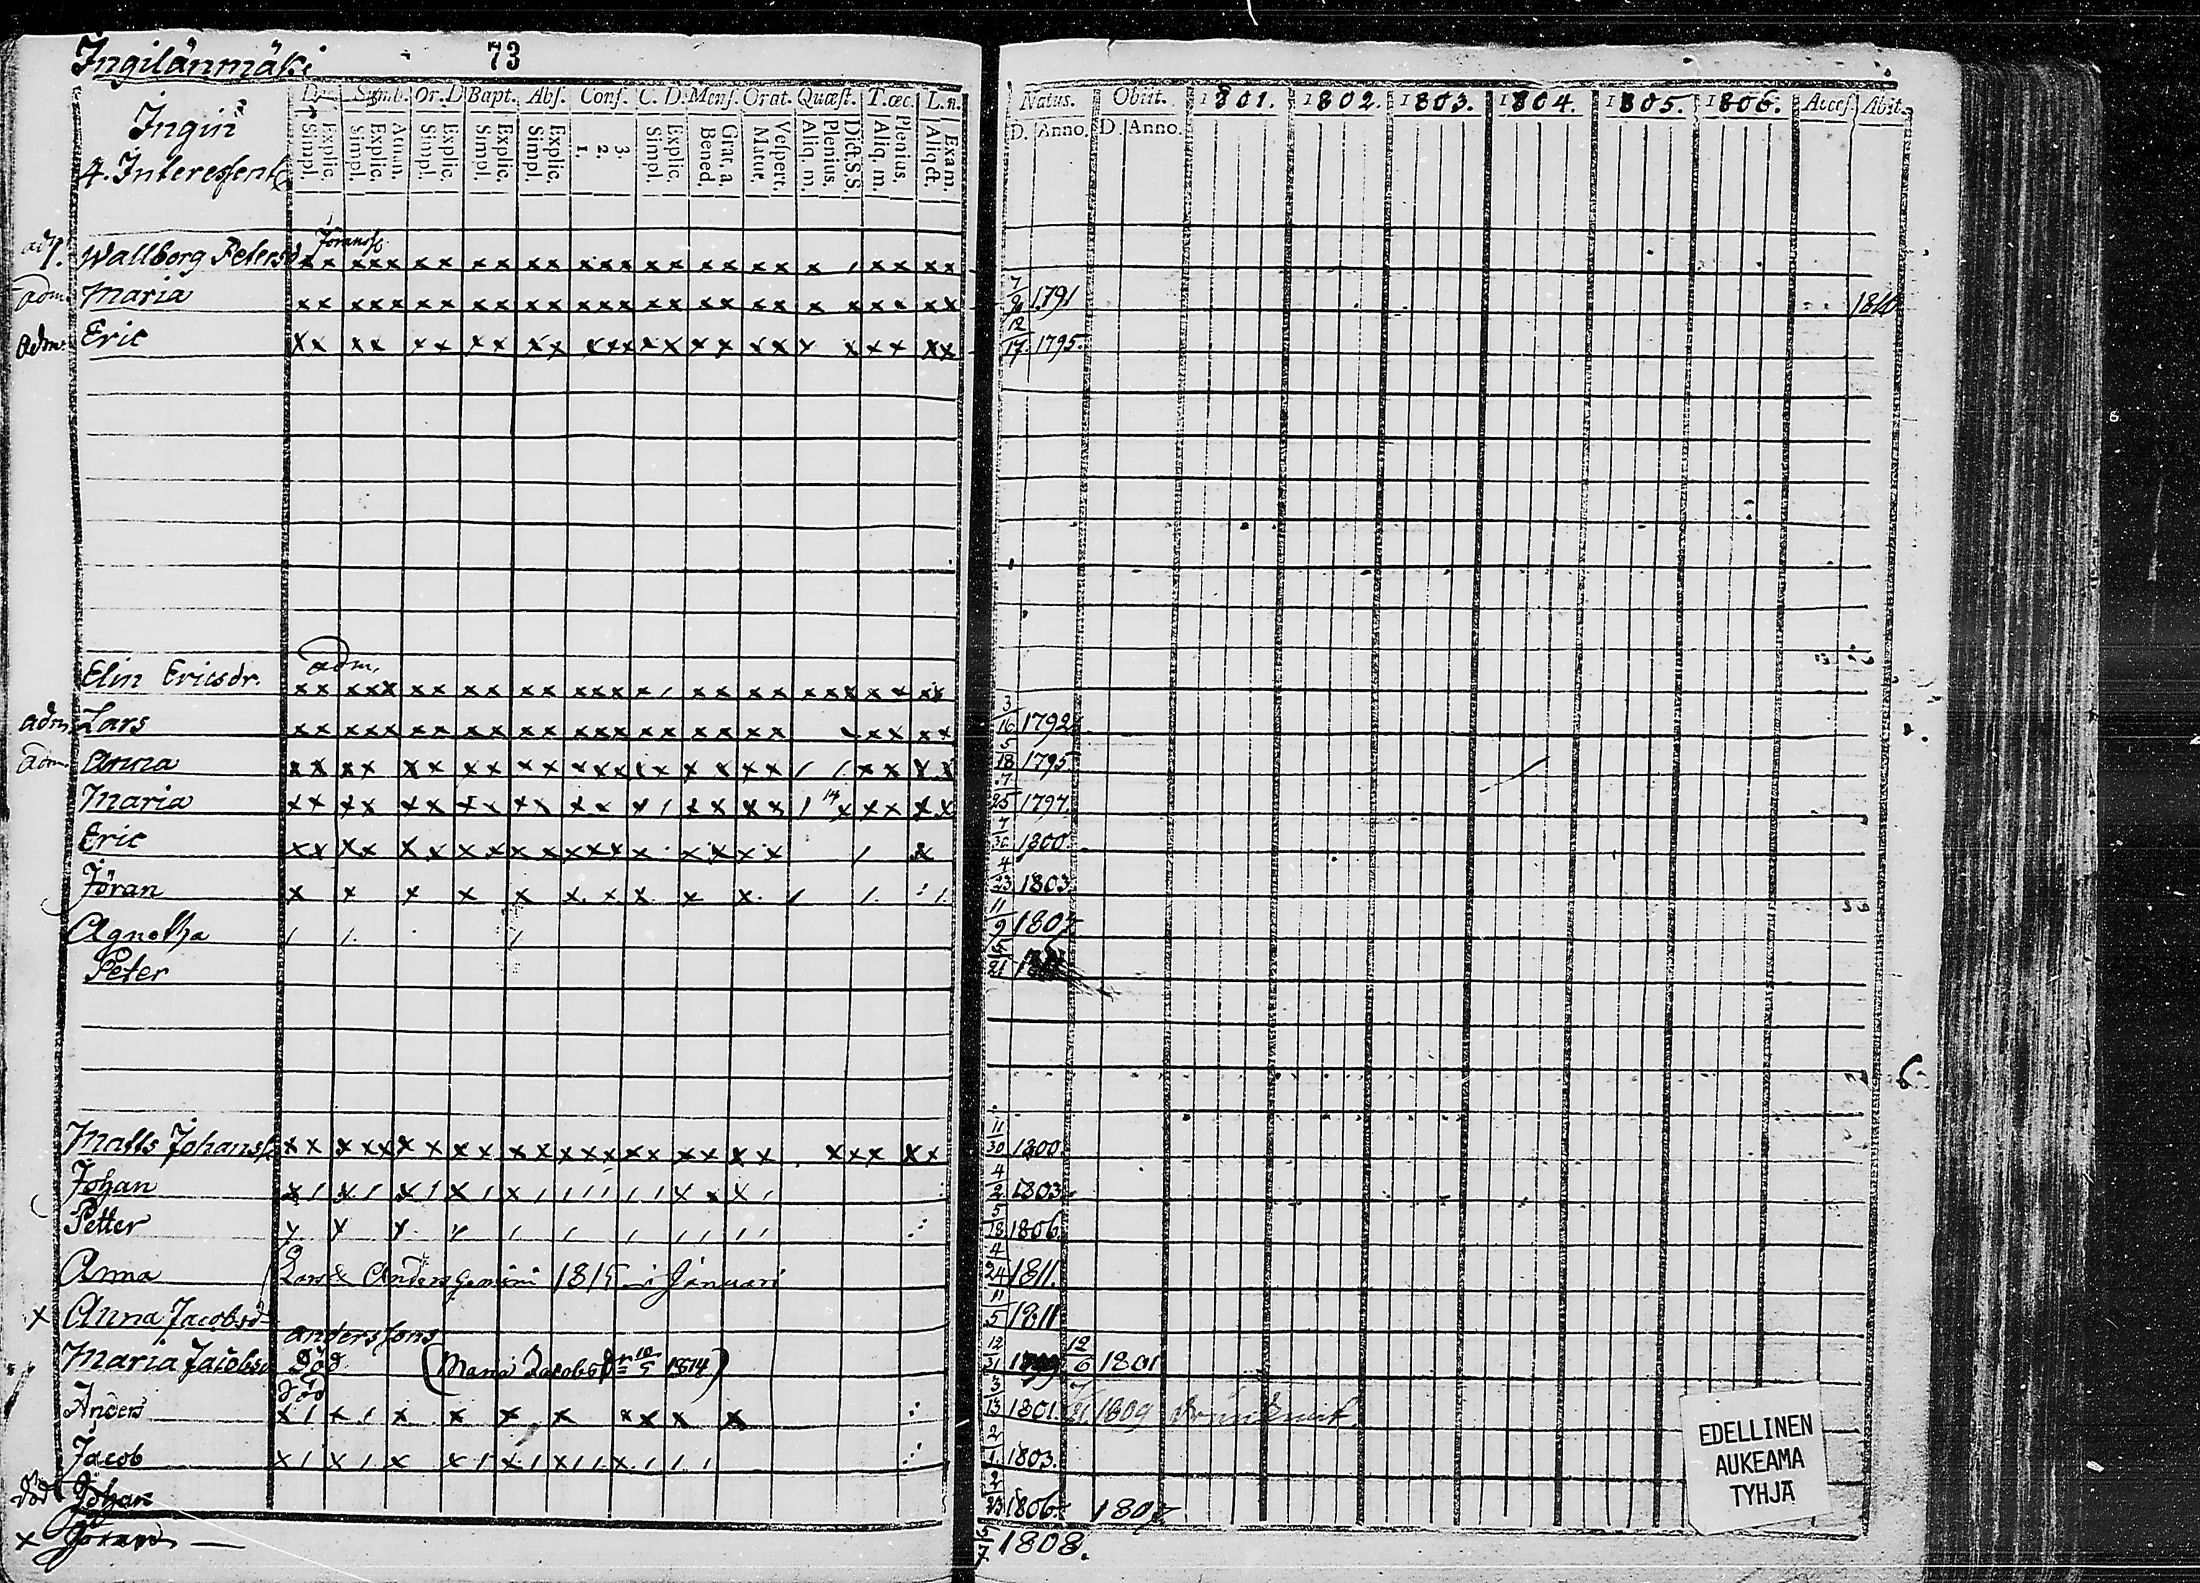 Ingilänmäki 73
Ingin
4. Interessent
Symb. Or. D Bapt. Abſ. Conf. C. D. Menſ. Orat. Quæſt. T. œc. L. n.
Simpl. Explic. Simpl. Explic. Athan. Simpl. Explic. Simpl. Explic. Simpl. Explic. 1. 2. 3. Simpl. Explic. Bened. Grat. a. Matut. Veſpert. Aliq. m. Plenius. Dict. S. S. Aliq. m. Plenius. Aliq. ct. Exam.
Natus. Obiit. 1801. 1802. 1803. 1804. 1805. 1806. Acceſ. Abit.
D. Anno. D Anno.
Wallborg Petersd
adm. Maria 7/9 1791 1810
adm. Eric 12/17 1795.
Elin Ericsdr. adm.
adm Lars 3/16 1792
adm. Anna 5/18 1795
Maria 7/25 1797.
Eric 7/30 1800.
Jöran 4/23 1803.
Agnetha 11/9 1807
Peter 5/21
Matts Johanss 11/30 1800.
Johan 4/2 1803.
Petter 5/18 1806.
Anna Lars & Anders Gemini 1815 i Januari 4/24 1811.
x Anna Jacobsd 11/5 1811
anderssons
Maria Jacobsd Död (Maria Jacobsdr 10/5 1814) 12/31 12/6 1801
död
Anders 3/13 1801. 1809
Jacob 2/1 1803.
död Johan 2/23 1806. 1807
x Jöran 5/7 1808.
EDELLINEN
AUKEAMA
TYHJÄ